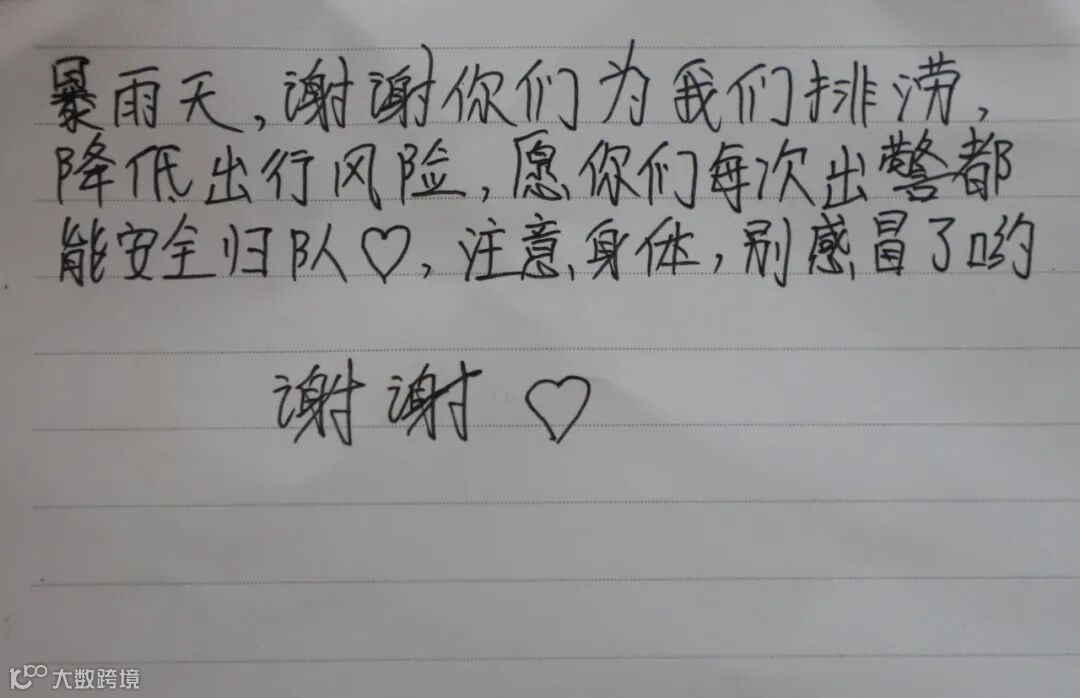 暴雨天,谢谢你们为我们排涝,
降低出行风险,愿你们每次出警都
能安全归队♡,注意身体,别感冒了哟
谢谢♡
大数跨境